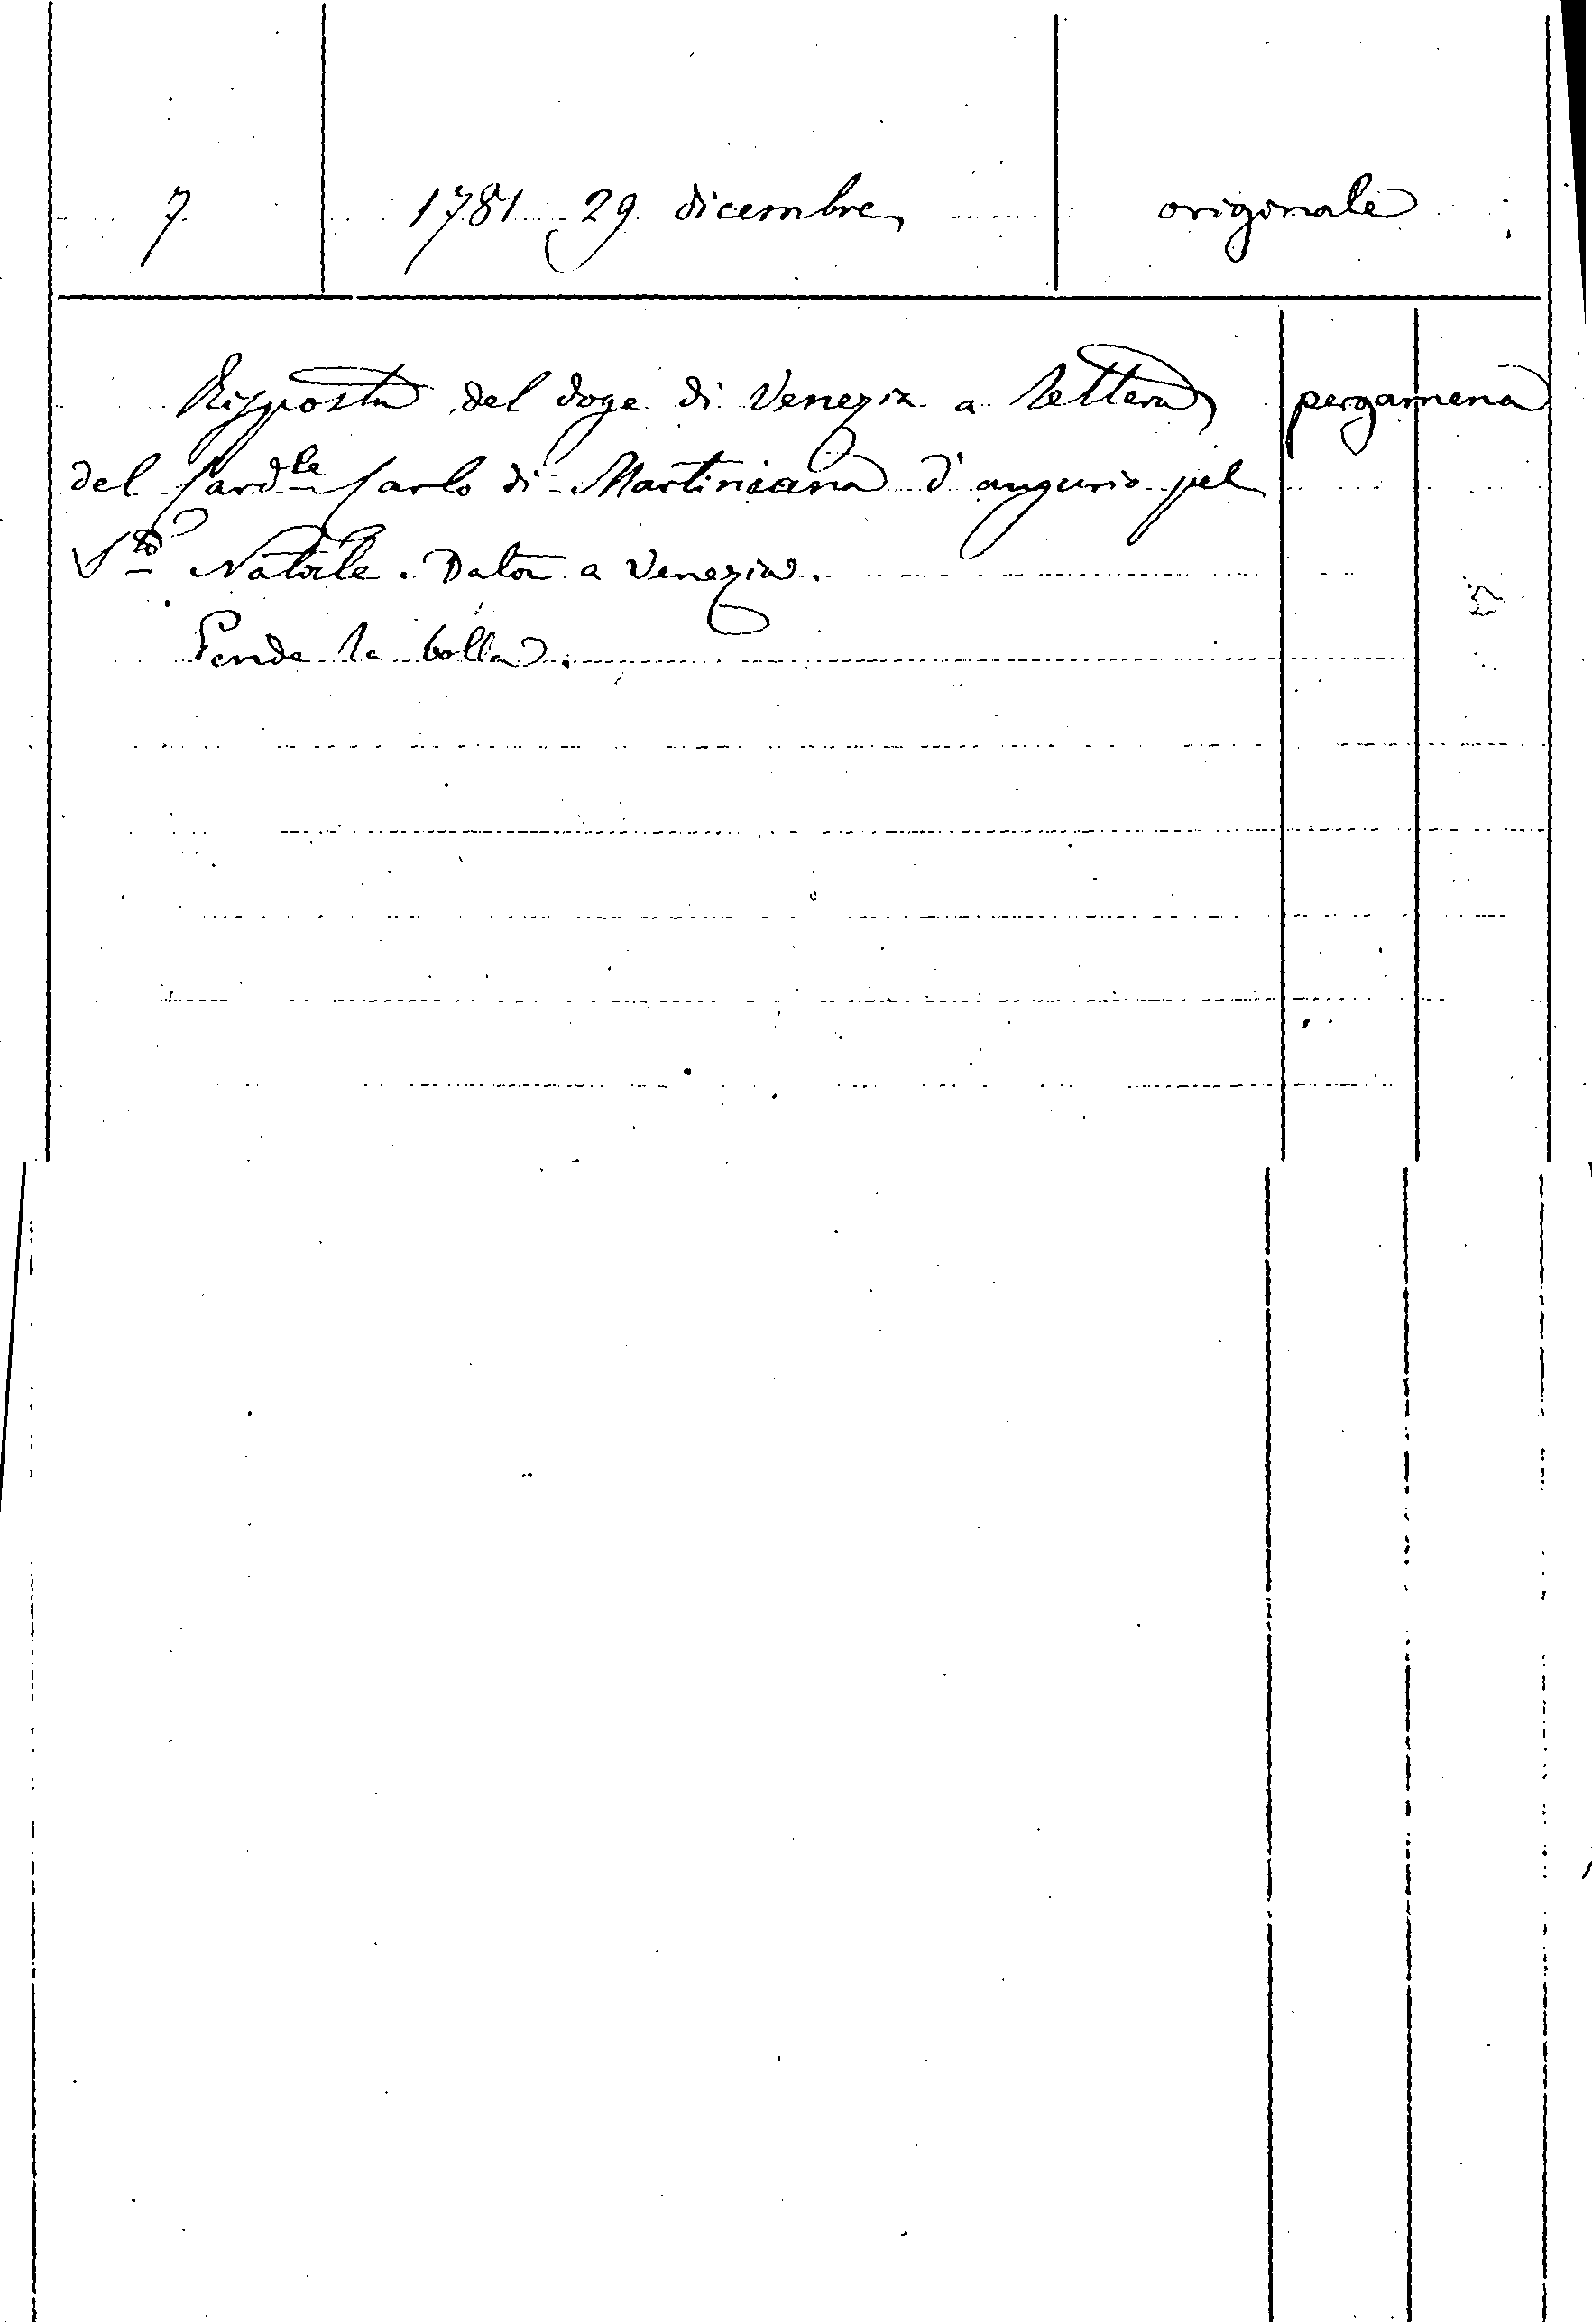 7 1781 29 dicembre originale
Risposta del doge di Venezia a lettera pergamena
del Card.le Carlo di Martiniana d'augurio pel
S.to Natale. Data a Venezia.
Pende la bolla.